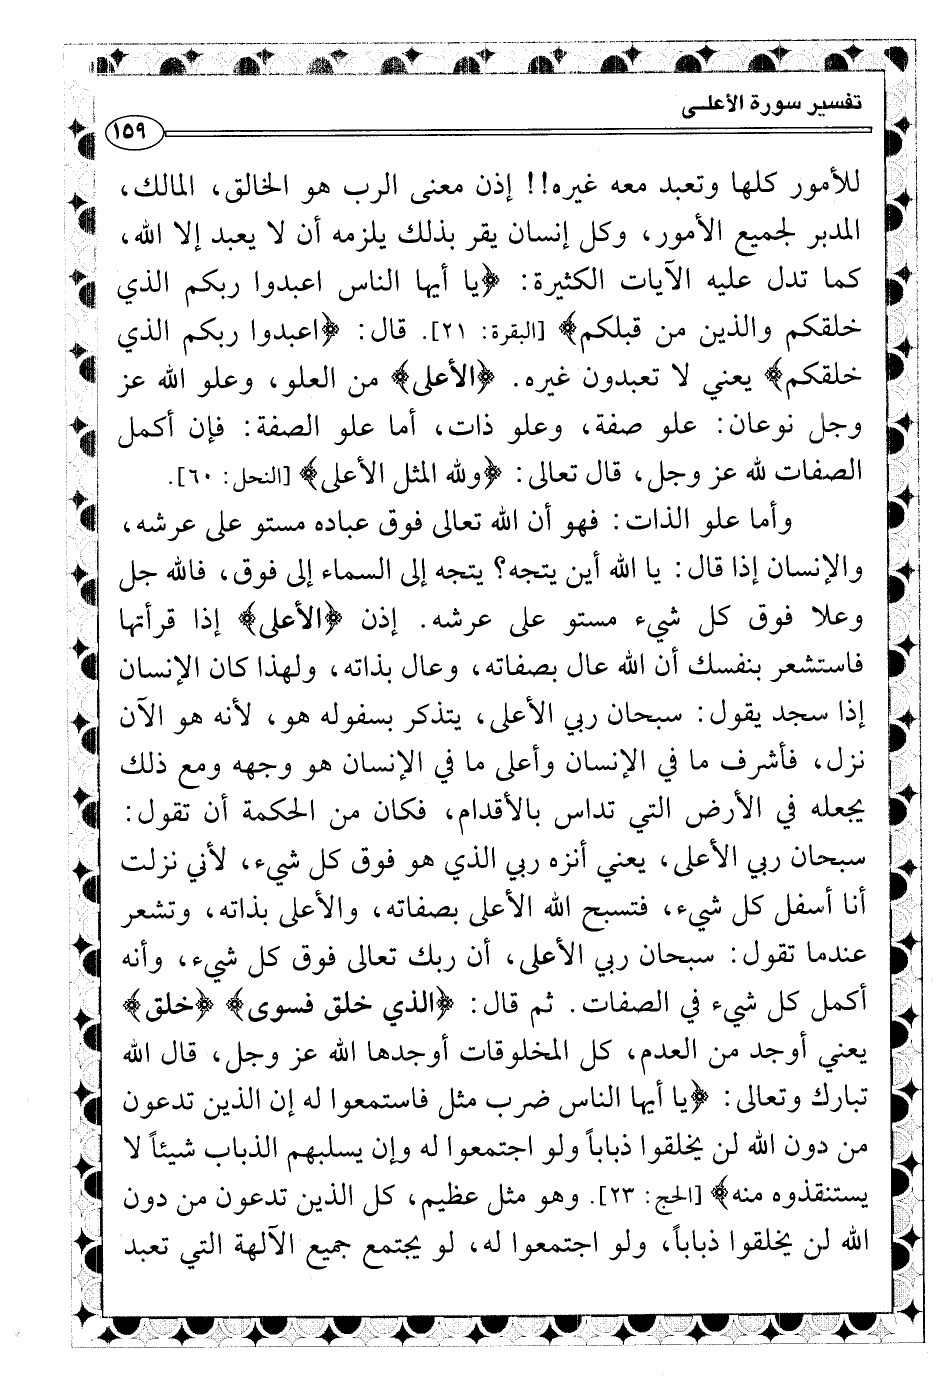 تفسير سورة الأعلى
١٥٩
للأمور كلها وتعبد معه غيره!! إذن معنى الرب هو الخالق، المالك،
المدبر لجميع الأمور، وكل إنسان يقر بذلك يلزمه أن لا يعبد إلا الله،
كما تدل عليه الآيات الكثيرة: ﴿يا أيها الناس اعبدوا ربكم الذي
خلقكم والذين من قبلكم﴾ [البقرة: ٢١]. قال: ﴿اعبدوا ربكم الذي
خلقكم﴾ يعني لا تعبدون غيره. ﴿الأعلى﴾ من العلو، وعلو الله عز
وجل نوعان: علو صفة، وعلو ذات، أما علو الصفة: فإن أكمل
الصفات لله عز وجل، قال تعالى: ﴿ولله المثل الأعلى﴾ [النحل: ٦٠].
وأما علو الذات: فهو أن الله تعالى فوق عباده مستو على عرشه،
والإنسان إذا قال: يا الله أين يتجه؟ يتجه إلى السماء إلى فوق، فالله جل
وعلا فوق كل شيء مستو على عرشه. إذن ﴿الأعلى﴾ إذا قرأتها
فاستشعر بنفسك أن الله عال بصفاته، وعال بذاته، ولهذا كان الإنسان
إذا سجد يقول: سبحان ربي الأعلى، يتذكر بسفوله هو، لأنه هو الآن
نزل، فأشرف ما في الإنسان وأعلى ما في الإنسان هو وجهه ومع ذلك
يجعله في الأرض التي تداس بالأقدام، فكان من الحكمة أن تقول:
سبحان ربي الأعلى، يعني أنزه ربي الذي هو فوق كل شيء، لأني نزلت
أنا أسفل كل شيء، فتسبح الله الأعلى بصفاته، والأعلى بذاته، وتشعر
عندما تقول: سبحان ربي الأعلى، أن ربك تعالى فوق كل شيء، وأنه
أكمل كل شيء في الصفات. ثم قال: ﴿الذي خلق فسوى﴾ ﴿خلق﴾
يعني أوجد من العدم، كل المخلوقات أوجدها الله عز وجل، قال الله
تبارك وتعالى: ﴿يا أيها الناس ضرب مثل فاستمعوا له إن الذين تدعون
من دون الله لن يخلقوا ذباباً ولو اجتمعوا له وإن يسلبهم الذباب شيئاً لا
يستنقذوه منه﴾ [الحج: ٢٣]. وهو مثل عظيم، كل الذين تدعون من دون
الله لن يخلقوا ذباباً، ولو اجتمعوا له، لو يجتمع جميع الآلهة التي تعبد